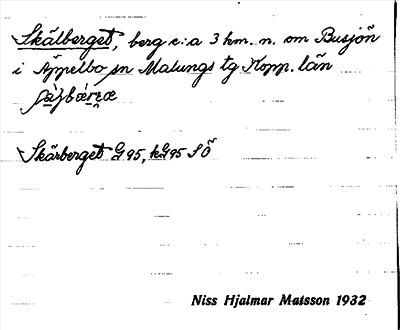 Skålberget, berg c:a 3 km. n. om Busjön
i Äppelbo sn Malungs tg Kopp. län
Skärberget G 95, kG 95 SÖ
Niss Hjalmar Matsson 1932